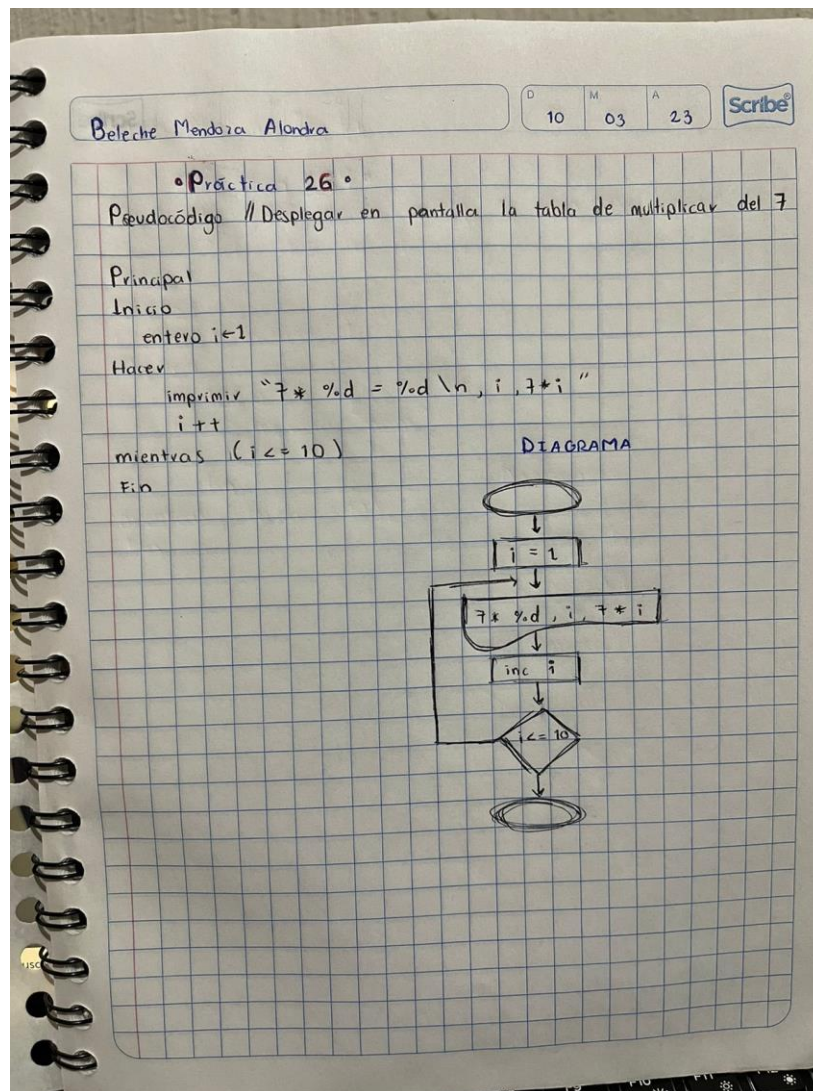 Beleche Mendoza Alondra
D 10 M 03 A 23
Scribe®
°Práctica 26°
Pseudocódigo // Desplegar en pantalla la tabla de multiplicar del 7
Principal
Inicio
entero i←1
Hacer
imprimir "7* %d = %d \n, i, 7*i"
i++
mientras (i <= 10)
Fin
DIAGRAMA
i = 1
7* %d, i, 7 * i
inc i
i <= 10
F10
F11